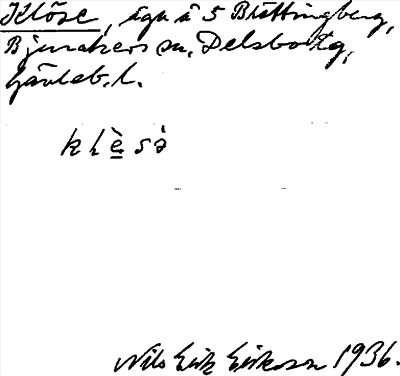 Klöse, ägn å 5 Brättingberg,
Bjuråkers sn, Delsbo tg,
Gävleb. l.
klè̱sà
Nils Erik Eriksson 1936.